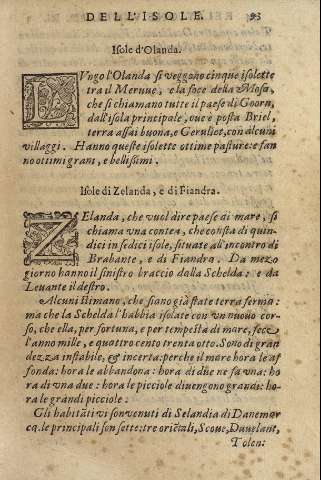 DELL'ISOLE. 93
Isole d'Olanda.
LVngo l'Olanda si veggono cinque isolette
tra il Meruue, e la foce della Mosa,
che si chiamano tutte il paese di Goorn,
dall'isola principale, oue è posta Briel,
terra assai buona, e Geruliet, con alcuni
villaggi. Hanno queste isolette ottime pasture: e fan
no ottimi grani, e bellissimi.
Isole di Zelanda, e di Fiandra.
ZElanda, che vuol dire paese di mare, si
chiama vna contea, che cōsista di quin
dici in sedici isole, situate all'incontro di
Brabante, e di Fiandra. Da mezo
giorno hanno il sinistro braccio dalla Schelda: e da
Leuante il destro.
Alcuni stimano, che siano già state terra ferma:
ma che la Schelda l'habbia isolate con vn nuouo cor-
so, che ella, per fortuna, e per tempesta di mare, fece
l'anno mille, e quattro cento trenta otto. Sono di gran
dezza instabile, & incerta: perche il mare hora le af
fonda: hora le abbandona: hora di due ne fa vna: ho
ra di vna due: hora le picciole diuengono grandi: ho-
ra le grandi picciole:
Gli habitāti vi son venuti di Selandia di Danemar
cq. le principali son sette: tre oriētali, Scoue, Duuelant,
Tolen: